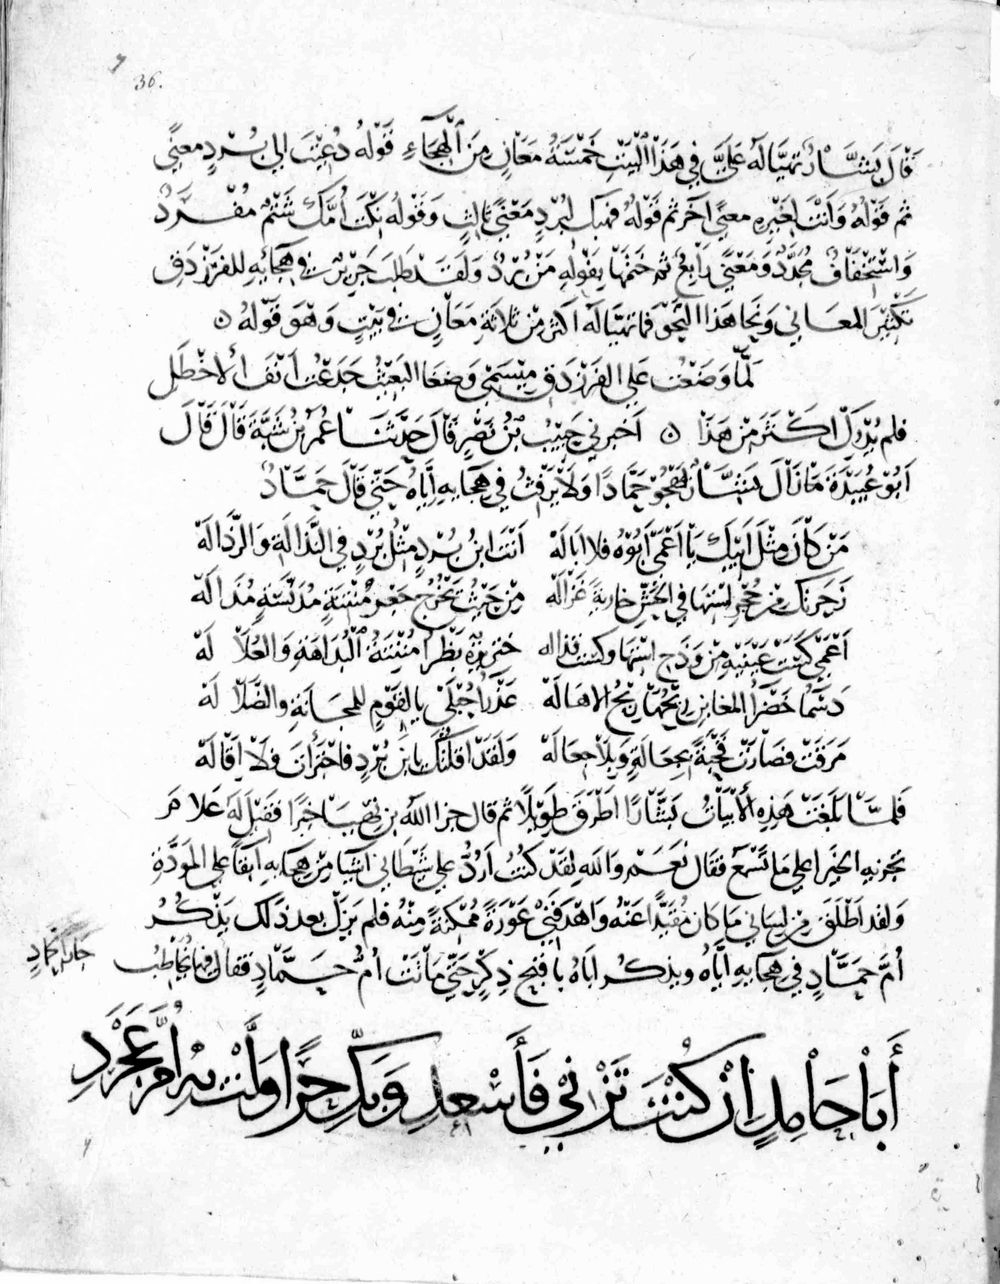 36.
قَالَ بَشَّارٌ تَهَيَّأَ لَهُ عَلَيَّ فِي هَذَا الْبَيْتِ خَمْسَةُ مَعَانٍ مِنَ الْهِجَاءِ قَوْلُهُ دُعِيْتَ إلى بُرْدٍ مَعْنًى
ثم قَوْلُهُ وَأَنْتَ لِغَيْرِهِ معنًى آخر ثم قَوْلُهُ فهبك لِبُرْدٍ مَعْنًى ثالث وَقَوْلُهُ نِكْتُ أُمَّكَ شَتْمٌ مُفْرَدٌ
وَاسْتِخْفَافٌ مُجَدَّدٌ وَمَعْنًى رَابِعٌ ثم خَتَمَهَا بِقَوْلِهِ مَنْ بُرْدٌ وَلَقَدْ طلب جَرِيْرٌ في هِجَائِهِ للفرزدق
تَكْثِيْرَ المعاني وَنَحَا هَذَا النَّحْوَ فما تهيَّأ لَهُ أكثر مِنْ ثلاثة مَعَانٍ في بَيْتٍ وَهْوَ قَوْلُهُ ٥
لَمَّا وَضَعْتُ على الفرزدق مِيْسَمِي وضغا البَعِيْثُ جَدَعْتُ أَنْفَ الأخْطَلِ
فلم يُدْرِكْ أكْثَرَ مِنْ هَذَا ٥ أخبرني حَبِيْبُ بْنُ نَصْرٍ قَالَ حدَّثَنَا عُمَرُ بْنُ شَبَّةَ قَالَ قَالَ
أَبُوْ عُبَيْدَةَ مَا زَالَ بَشَّارٌ يَهْجُوْ حَمَّادًا وَلَا يَرْفُثُ فِي هِجَايِهِ إِيَّاهُ حَتَّى قَالَ حَمَّادٌ
مَنْ كَانَ مِثْلَ أَبِيْكَ يَا أعْمَى أَبُوْهُ فلا أبَا لَهْ أَنْتَ ابن بُرْدٍ مِثْلُ بُرْدٍ فِي النَّذَالَةِ وَالرَّذَالَهْ
مِنْ حَيْثُ يَخْرُجُ جَعْرُ مُنْتِنَةٍ مُدَنَّسَةٍ مُذَالَهْ
أَعْمَى كَسَتْ عَيْنَيْهِ مِنْ وَذَحِ اسْتِهَا وكست قذاله خنزيرة بَظْرَا مُنْتِنَةُ الْبُدَاهَةِ وَالْعُلَالَهْ
رَسْحَا خَضْرَا المغابن رِيْحُهَا رِيْحُ الإهَالَهْ عَذْرَا حُبْلَى يا لقَوْمِ للمجانة والضَّلَالَهْ
مَرَقَتْ فصارَتْ قَحْبَةً بِجعَالَةٍ وَبِلَا جعَالَهْ وَلَقَدْ أقلتُكَ يا بن بُرْدٍ فاجْتَرأت فَلَا إقَالَهْ
فَلَمَّا بَلَغَتْ هَذِهِ الأبْيَاتُ بَشَّارًا أَطْرَقَ طَوِيْلًا ثم قال جزا الله بن نِهيَا خيرًا فقيل لَهُ عَلَامَ
تجزيه الخير أعلى مَا تَسْمَعُ فقال نَعَمْ وَاللهِ لقد كنْتُ أَرُدُّ على شيطاني أشيا مِنْ هِجَايِهِ إِبْقَاءً على المَوَدَّةِ
وَلقد أطْلَقَ مِنْ لِسَانِي مَا كان مُقَيَّدًا عَنْهُ وَأهْدَفَنِي عَوْرَةً مُمْكِنَةً مِنْهُ فلم يَزَلْ بعد ذلك يَذْكُرُ
أُمَّ حَمَّادٍ فِي هِجَايِهِ إِيَّاهُ وَيذكر أبَاهُ بِأقبح ذِكْرٍ حَتَّى مَاتَتْ أُمُّ حَمَّادٍ فقال فيها يُخَاطِبُ
أَبَا حَامِدٍ إِنْ كُنْتَ تَزْنِي فَأَسْعِدِ وَبَكِّ حِرًا وَلَّتْ بِهِ أُمُّ عَجْرَدِ